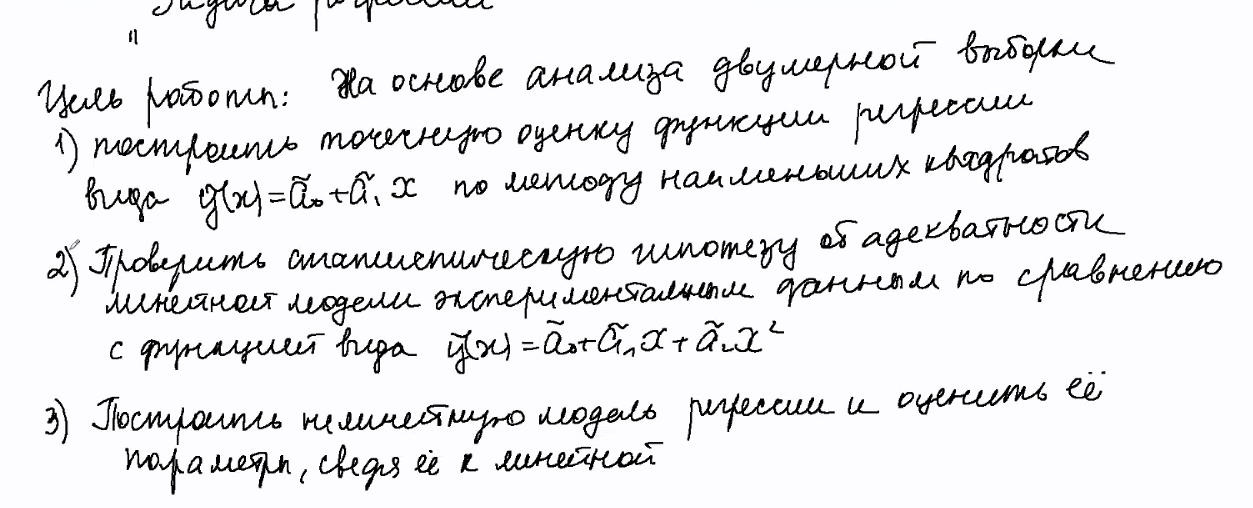 Задача регрессии
"
Цель работы: На основе анализа двумерной выборки
1) построить точечную оценку функции регрессии
вида ỹ(x) = ã₀ + ã₁ x по методу наименьших квадратов
2) Проверить статистическую гипотезу об адекватности
линейной модели экспериментальным данным по сравнению
с функцией вида ỹ(x) = ã₀ + ã₁ x + ã₂ x²
3) Построить нелинейную модель регрессии и оценить её
параметры, сведя её к линейной